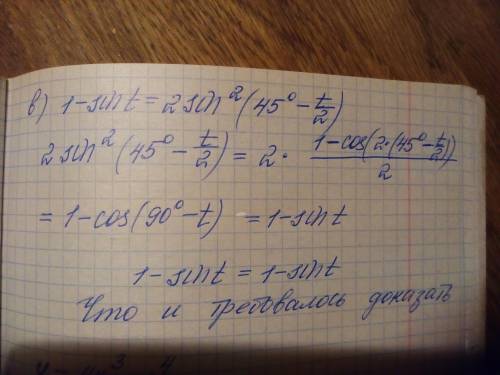 в) 1-sin t = 2 sin²(45° - t/2)
2 sin²(45° - t/2) = 2 · (1-cos(2·(45° - t/2)))/2
= 1-cos(90° - t) = 1-sin t
1-sin t = 1-sin t
Что и требовалось доказать